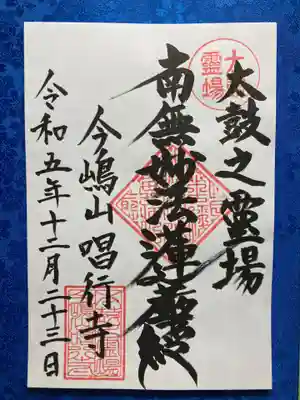 太鼓之霊場
南無妙法蓮華経
今嶋山唱行寺
令和五年十二月二十三日